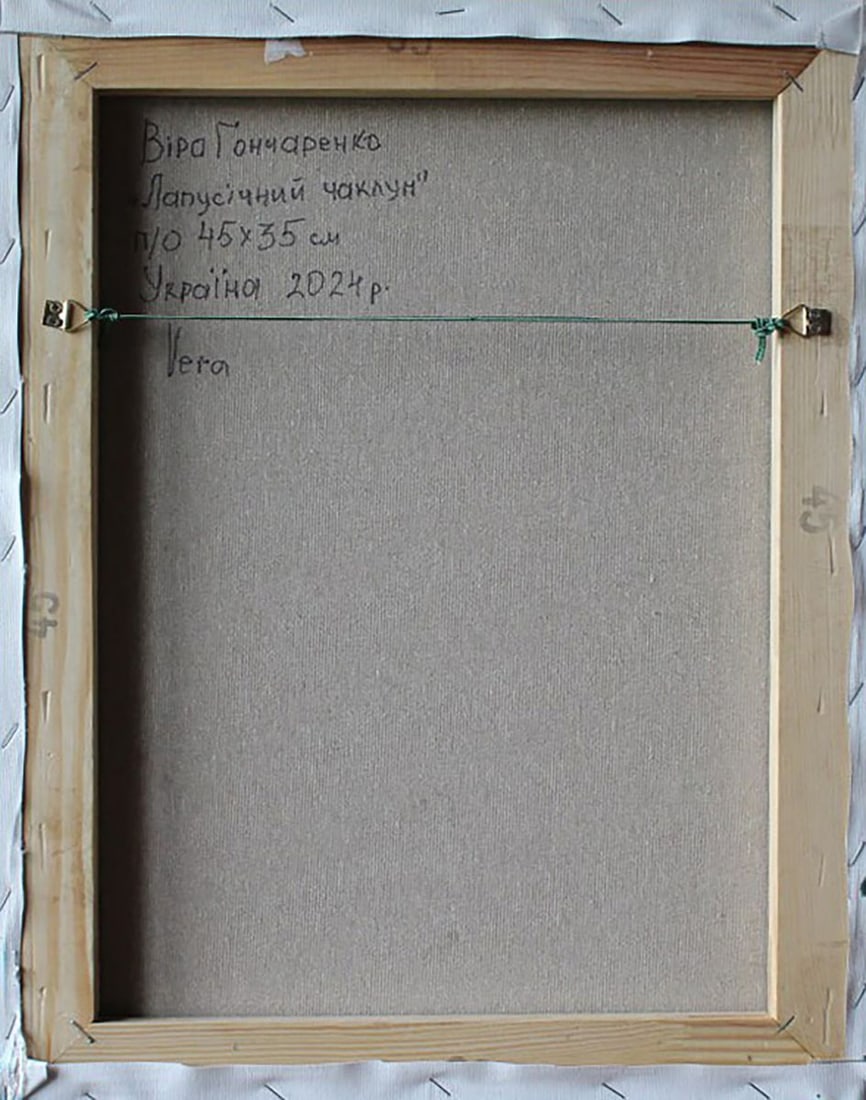 35
Віра Гончаренко
„Лапусічний чаклун"
п/о 45х35 см
Україна 2024 р.
Vera
45
45